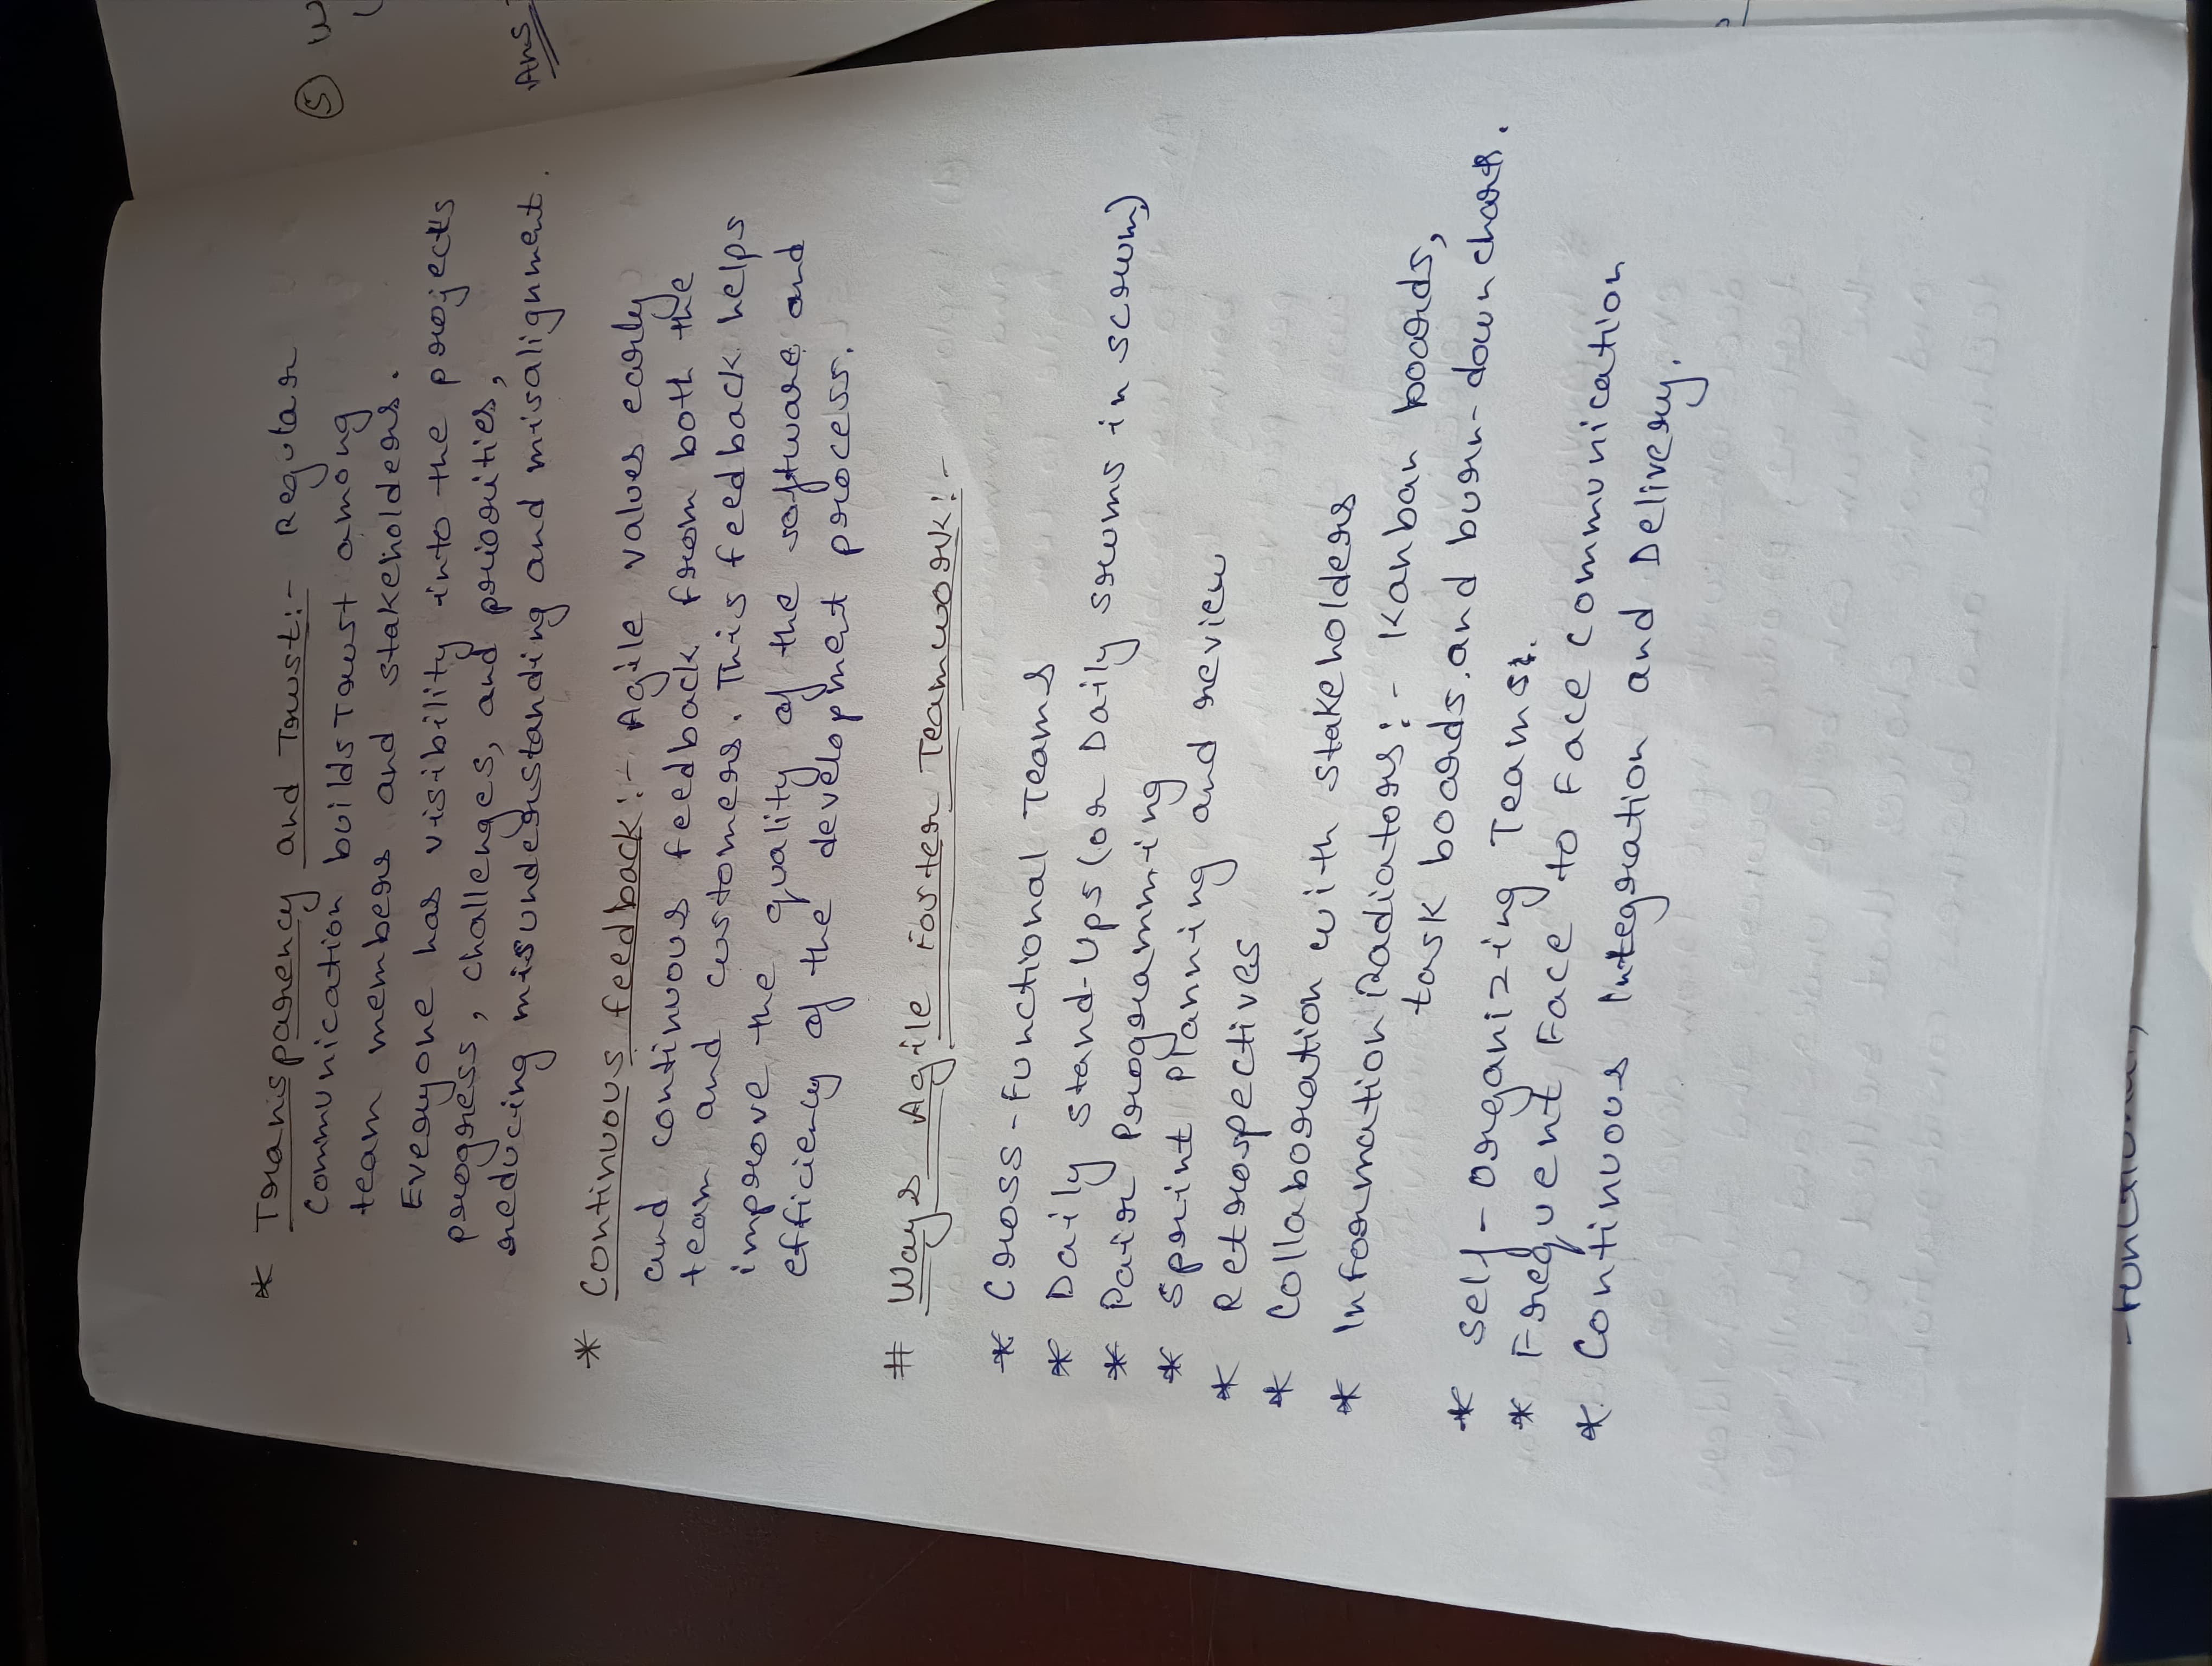 * Transparency and Trust:- Regular
Communication builds Trust among
team members and stakeholders.
Everyone has visibility into the projects
progress, challenges, and priorities,
reducing misunderstanding and misalignment.
* Continuous feedback:- Agile values early
and continuous feedback from both the
team and customers. This feedback helps
improve the quality of the software and
efficiency of the development process.
# Ways Agile Foster Teamwork:-
* Cross-Functional Teams
* Daily Stand-Ups (or Daily srums in scrum)
* Pair Programming
* Sprint Planning and review
* Retrospectives
* Collaboration with stakeholders
* Information Radiators:- Kanban boards,
task boards, and burn-down charts.
* Self-Organizing Teams.
* Frequent Face to Face communication
* Continuous Integration and Delivery.
5
Ans